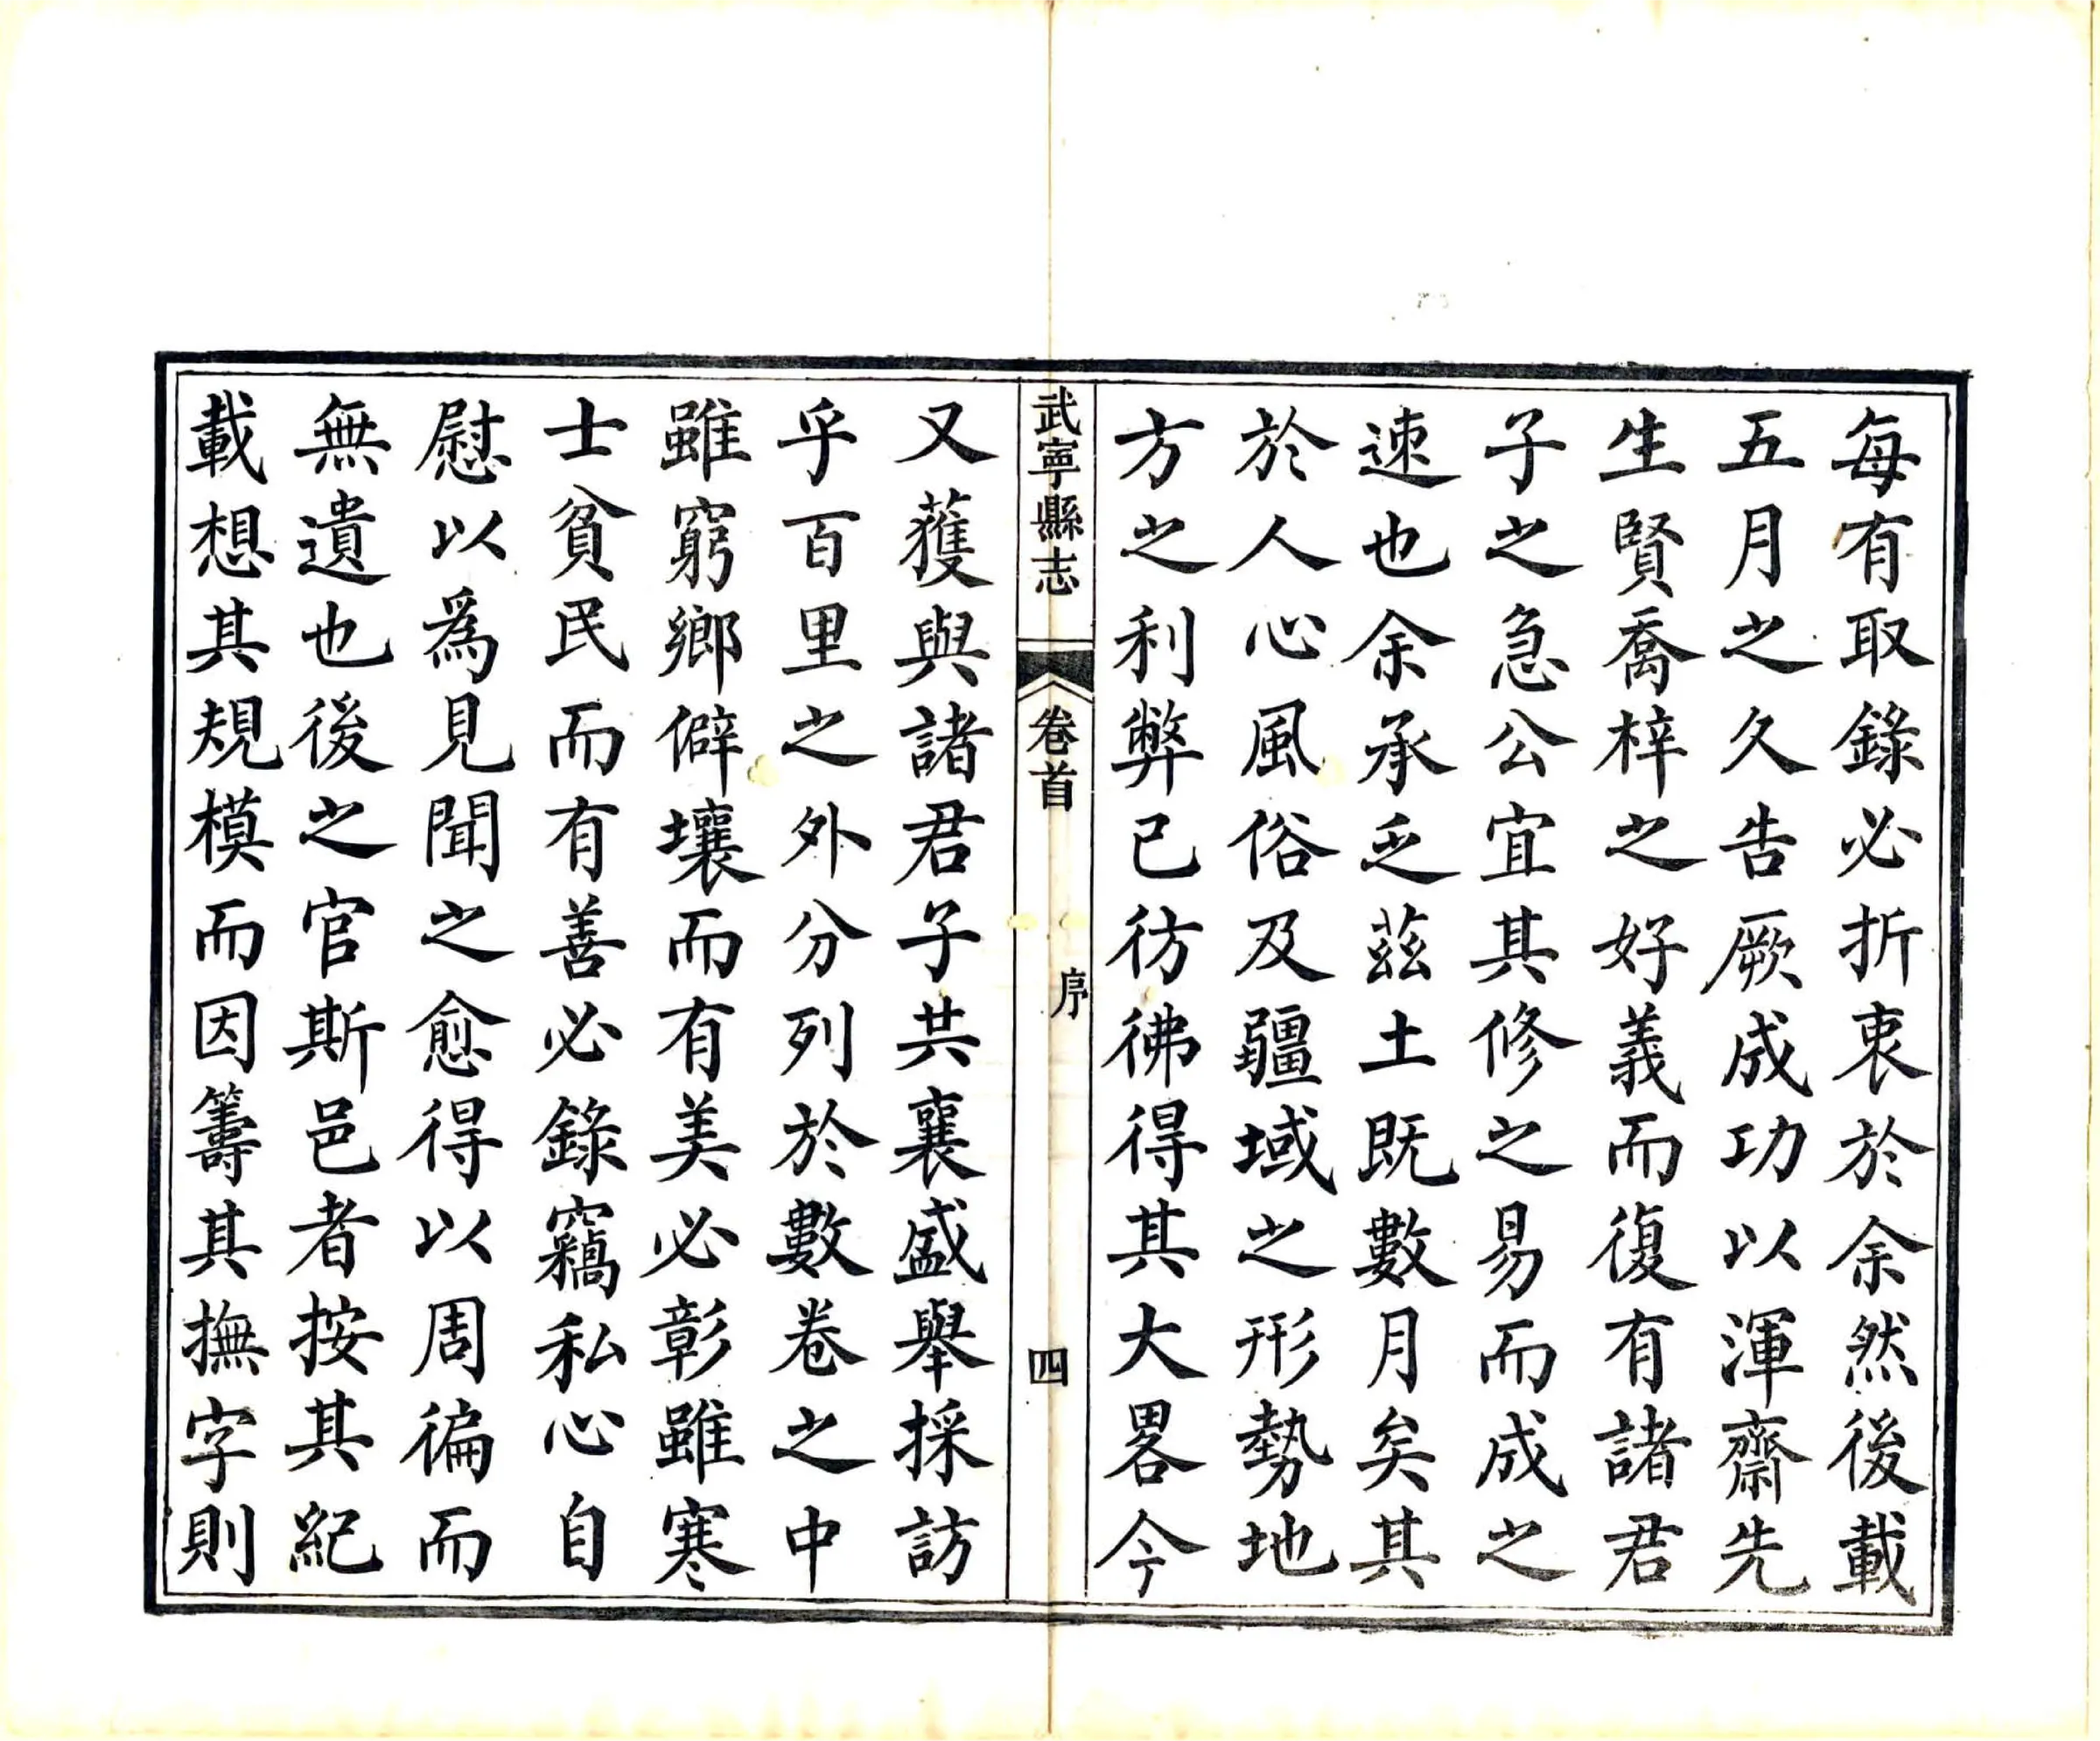 每有取錄必折衷於余然後載
五月之久告厥成功以渾齋先
生賢喬梓之好義而復有諸君
子之急公宜其修之易而成之
速也余承乏茲土既數月矣其
於人心風俗及疆域之形勢地
方之利弊已彷彿得其大畧今
武寧縣志 卷首 序 四
又獲與諸君子共襄盛舉採訪
乎百里之外分列於數卷之中
雖窮鄉僻壤而有美必彰雖寒
士貧民而有善必錄竊私心自
慰以為見聞之愈得以周徧而
無遺也後之官斯邑者按其紀
載想其規模而因籌其撫字則